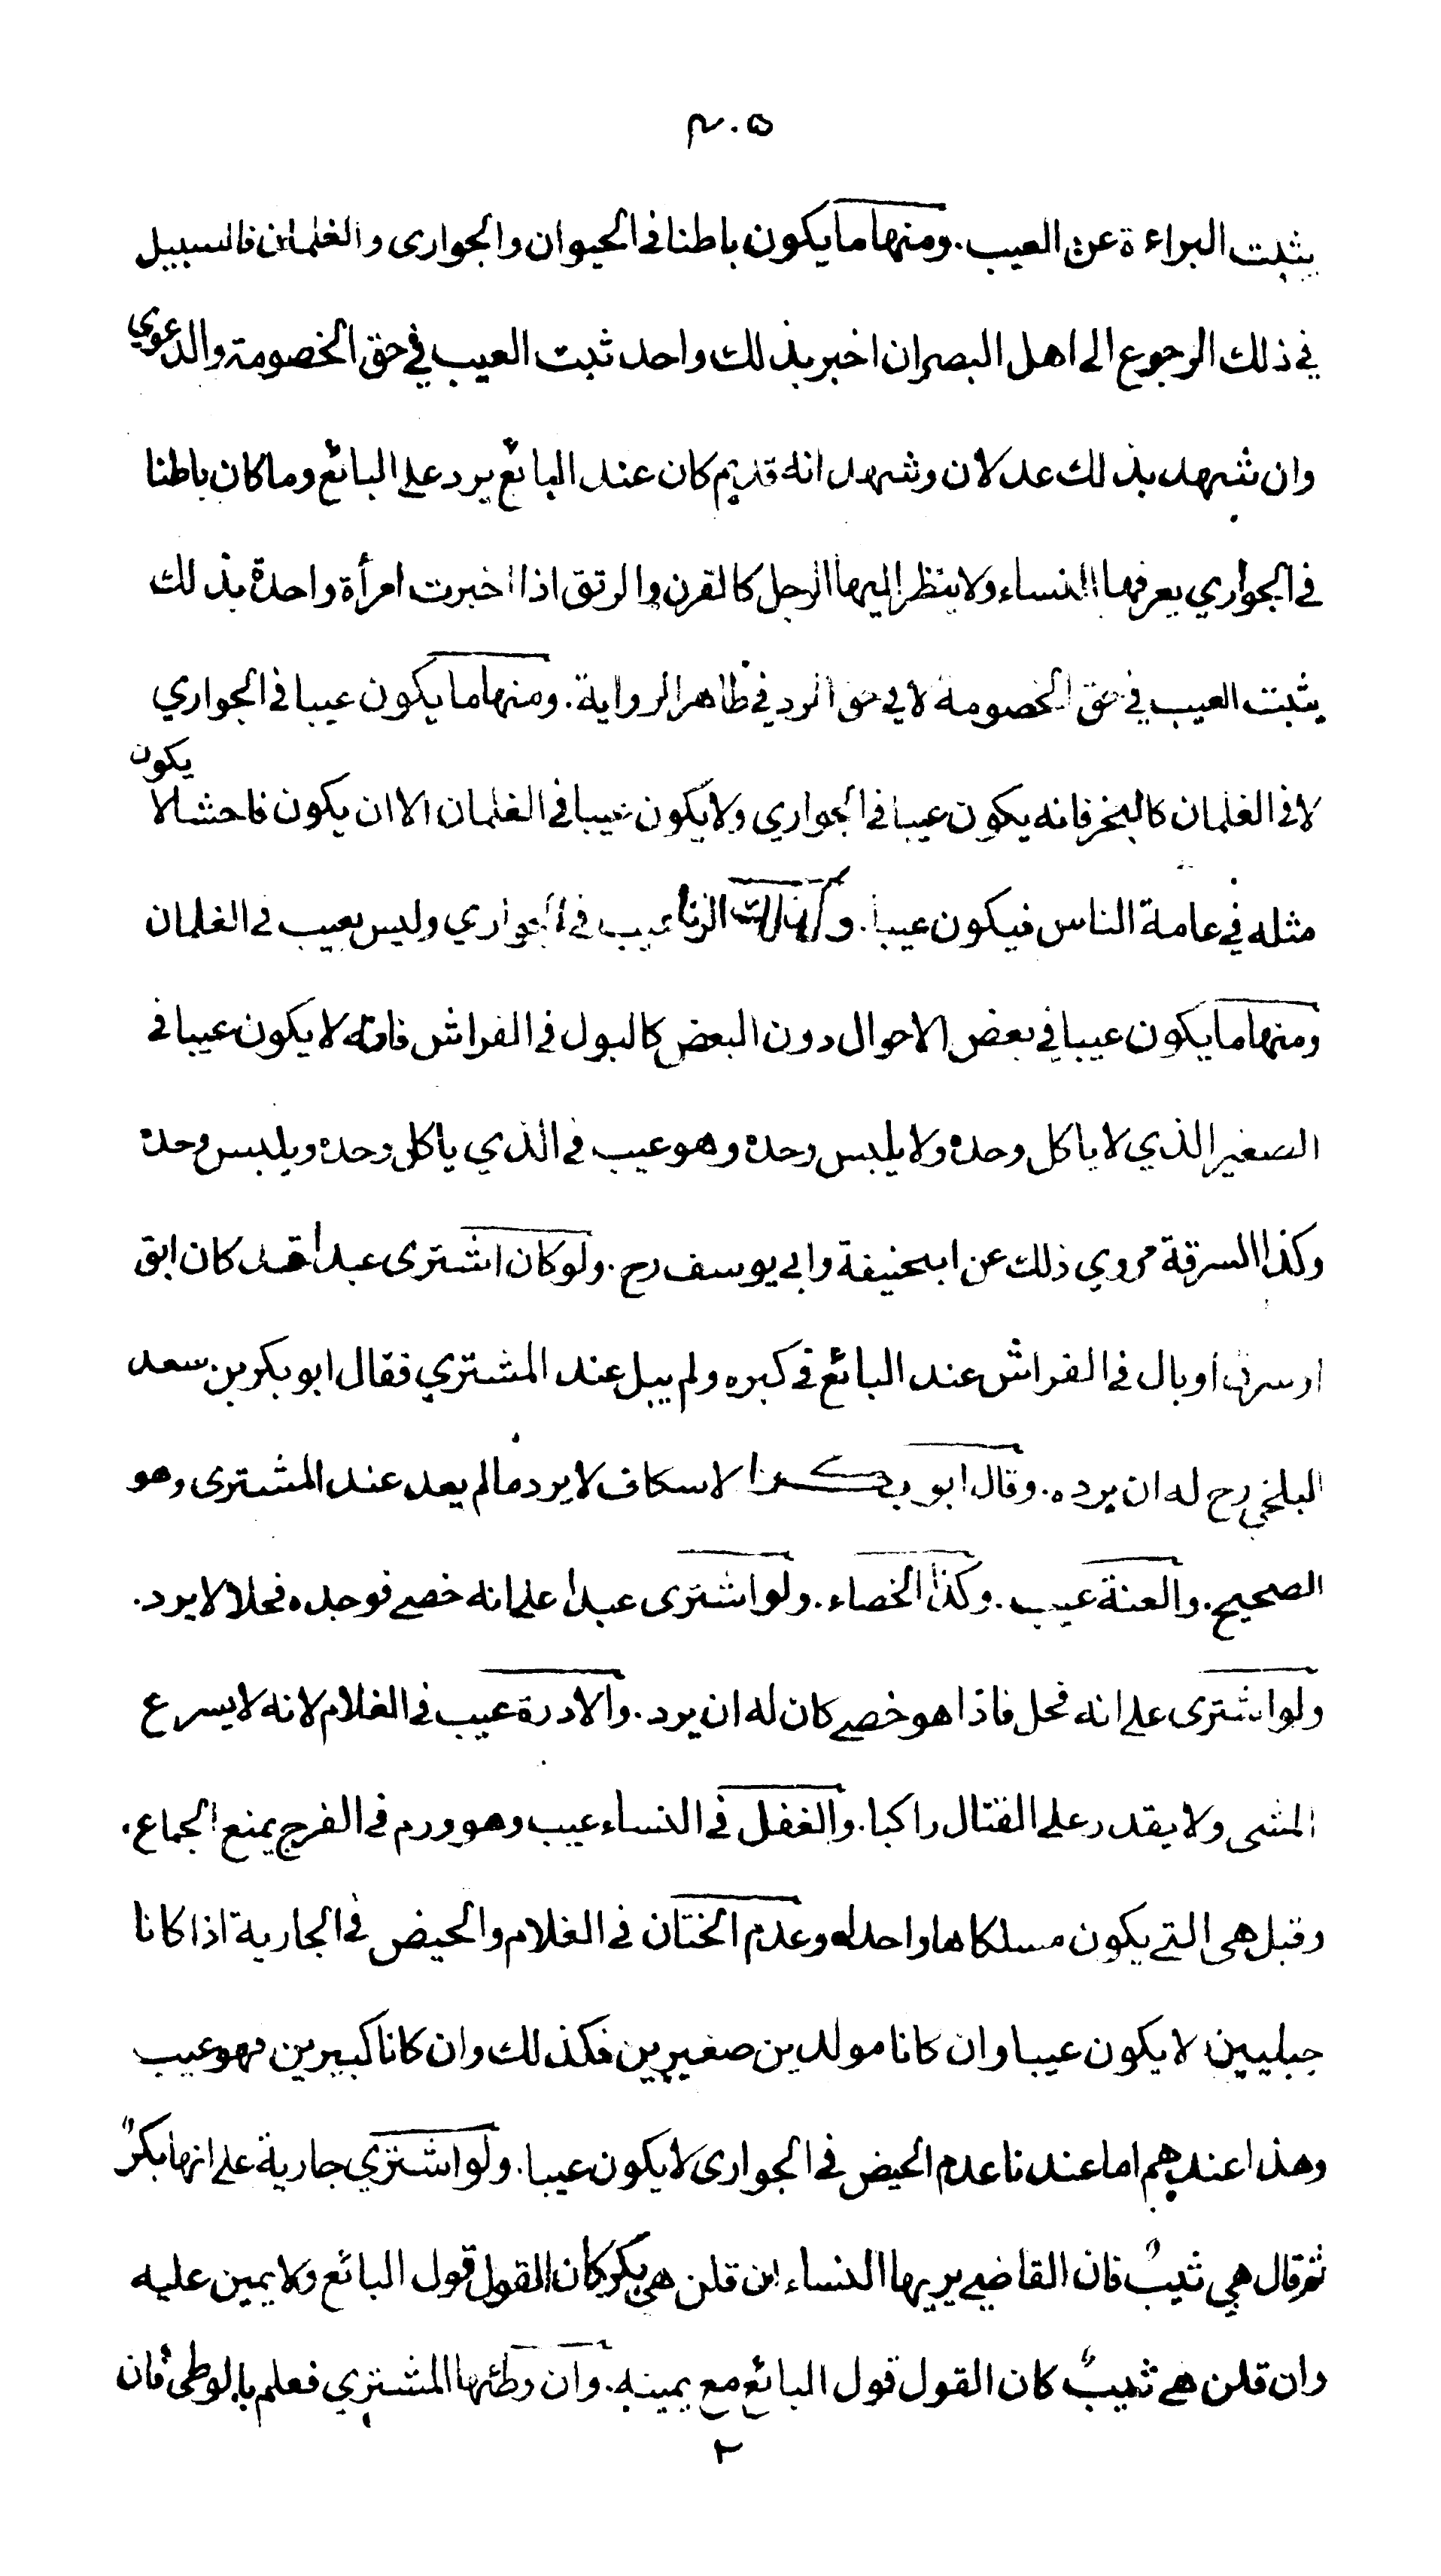 ۳۰۵
يثبت البراءة عن العيب. ومنها ما يكون باطنا في الحيوان والجوارى والغلمان فالسبيل
في ذلك الرجوع الى اهل البصر ان اخبر بذلك واحد ثبت العيب في حق الخصومة والدعوي
وان شهد بذلك عدلان وشهد انه قديم كان عند البائع يرد على البائع وما كان باطنا
في الجواري يعرفها النساء ولا ينظر اليها الرجل كالقرن والرتق اذا اخبرت امرأة واحدة بذلك
يثبت العيب في حق الخصومة لا في حق الرد في ظاهر الرواية. ومنها ما يكون عيبا في الجواري
لا في الغلمان كالبخر فانه يكون عيبا في الجواري ولا يكون عيبا في الغلمان الا ان يكون فاحشا لا يكون
مثله في عامة الناس فيكون عيبا. وكذلك الزنا عيب في الجواري وليس بعيب في الغلمان
ومنها ما يكون عيبا في بعض الاحوال دون البعض كالبول في الفراش فانه لا يكون عيبا في
الصغير الذي لا ياكل وحده ولا يلبس وحده وهو عيب في الذي ياكل وحده ويلبس وحده
وكذا السرقة مروي ذلك عن ابيحنيفة وابي يوسف رح. ولو كان اشترى عبدا قد كان ابق
او سرق او بال في الفراش عند البائع في كبره ولم يبل عند المشتري فقال ابو بكر بن سعد
البلخي رح له ان يرده. وقال ابو بكر الاسكاف لا يرد مالم يعد عند المشترى وهو
الصحيح. والعنة عيب. وكذا الخصاء. ولو اشترى عبدا على انه خصي فوجده فحلا لا يرد.
ولو اشترى على انه فحل فاذا هو خصي كان له ان يرد. والادرة عيب في الغلام لانه لا يسرع
المشى ولا يقدر على القتال راكبا. والغفل في النساء عيب وهو ورم في الفرج يمنع الجماع.
وقيل هي التي يكون مسلكاها واحدا وعدم الختان في الغلام والحيض في الجارية اذا كانا
جبليين لا يكون عيبا وان كانا مولدين صغيرين فكذلك وان كانا كبيرين فهو عيب
وهذا عندهم اما عندنا عدم الحيض في الجوارى لا يكون عيبا. ولو اشتري جارية على انها بكرٌ
ثم قال هي ثيبٌ فان القاضي يريها النساء ان قلن هي بكر كان القول قول البائع ولا يمين عليه
وان قلن هي ثيبٌ كان القول قول البائع مع يمينه. وان وطئها المشتري فعلم بالوطئ فان
٢